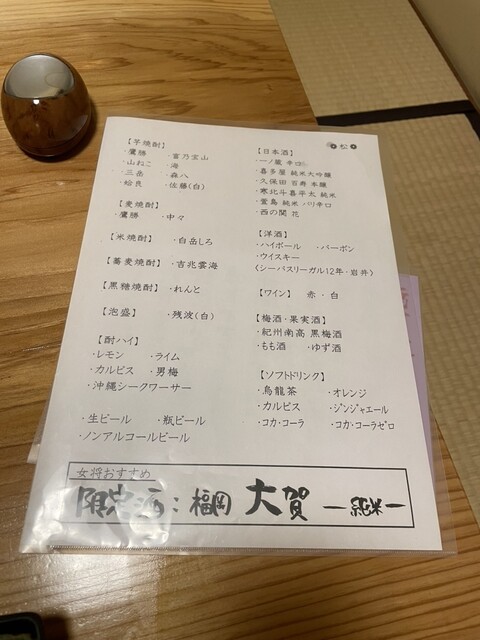 松
【芋焼酎】
・鷹勝 ・富乃宝山
・山ねこ ・海
・三岳 ・森八
・蛤良 ・佐藤(白)
【麦焼酎】
・鷹勝 ・中々
【米焼酎】 ・白岳しろ
【蕎麦焼酎】 ・吉兆雲海
【黒糖焼酎】 ・れんと
【泡盛】 ・残波(白)
【酎ハイ】
・レモン ・ライム
・カルピス ・男梅
・沖縄シークワーサー
・生ビール ・瓶ビール
・ノンアルコールビール
【日本酒】
・一ノ蔵 辛口
・喜多屋 純米大吟醸
・久保田 百寿 本醸
・寒北斗喜平太 純米
・萱島 純米 バリ辛口
・西の関 花
【洋酒】
・ハイボール ・バーボン
・ウイスキー
(シーバスリーガル12年・岩井)
【ワイン】 赤・白
【梅酒・果実酒】
・紀州南高 黒梅酒
・もも酒 ・ゆず酒
【ソフトドリンク】
・烏龍茶 ・オレンジ
・カルピス ・ジンジャエール
・コカ・コーラ ・コカ・コーラゼロ
女将おすすめ
限定酒：福岡 大賀 ー純米ー